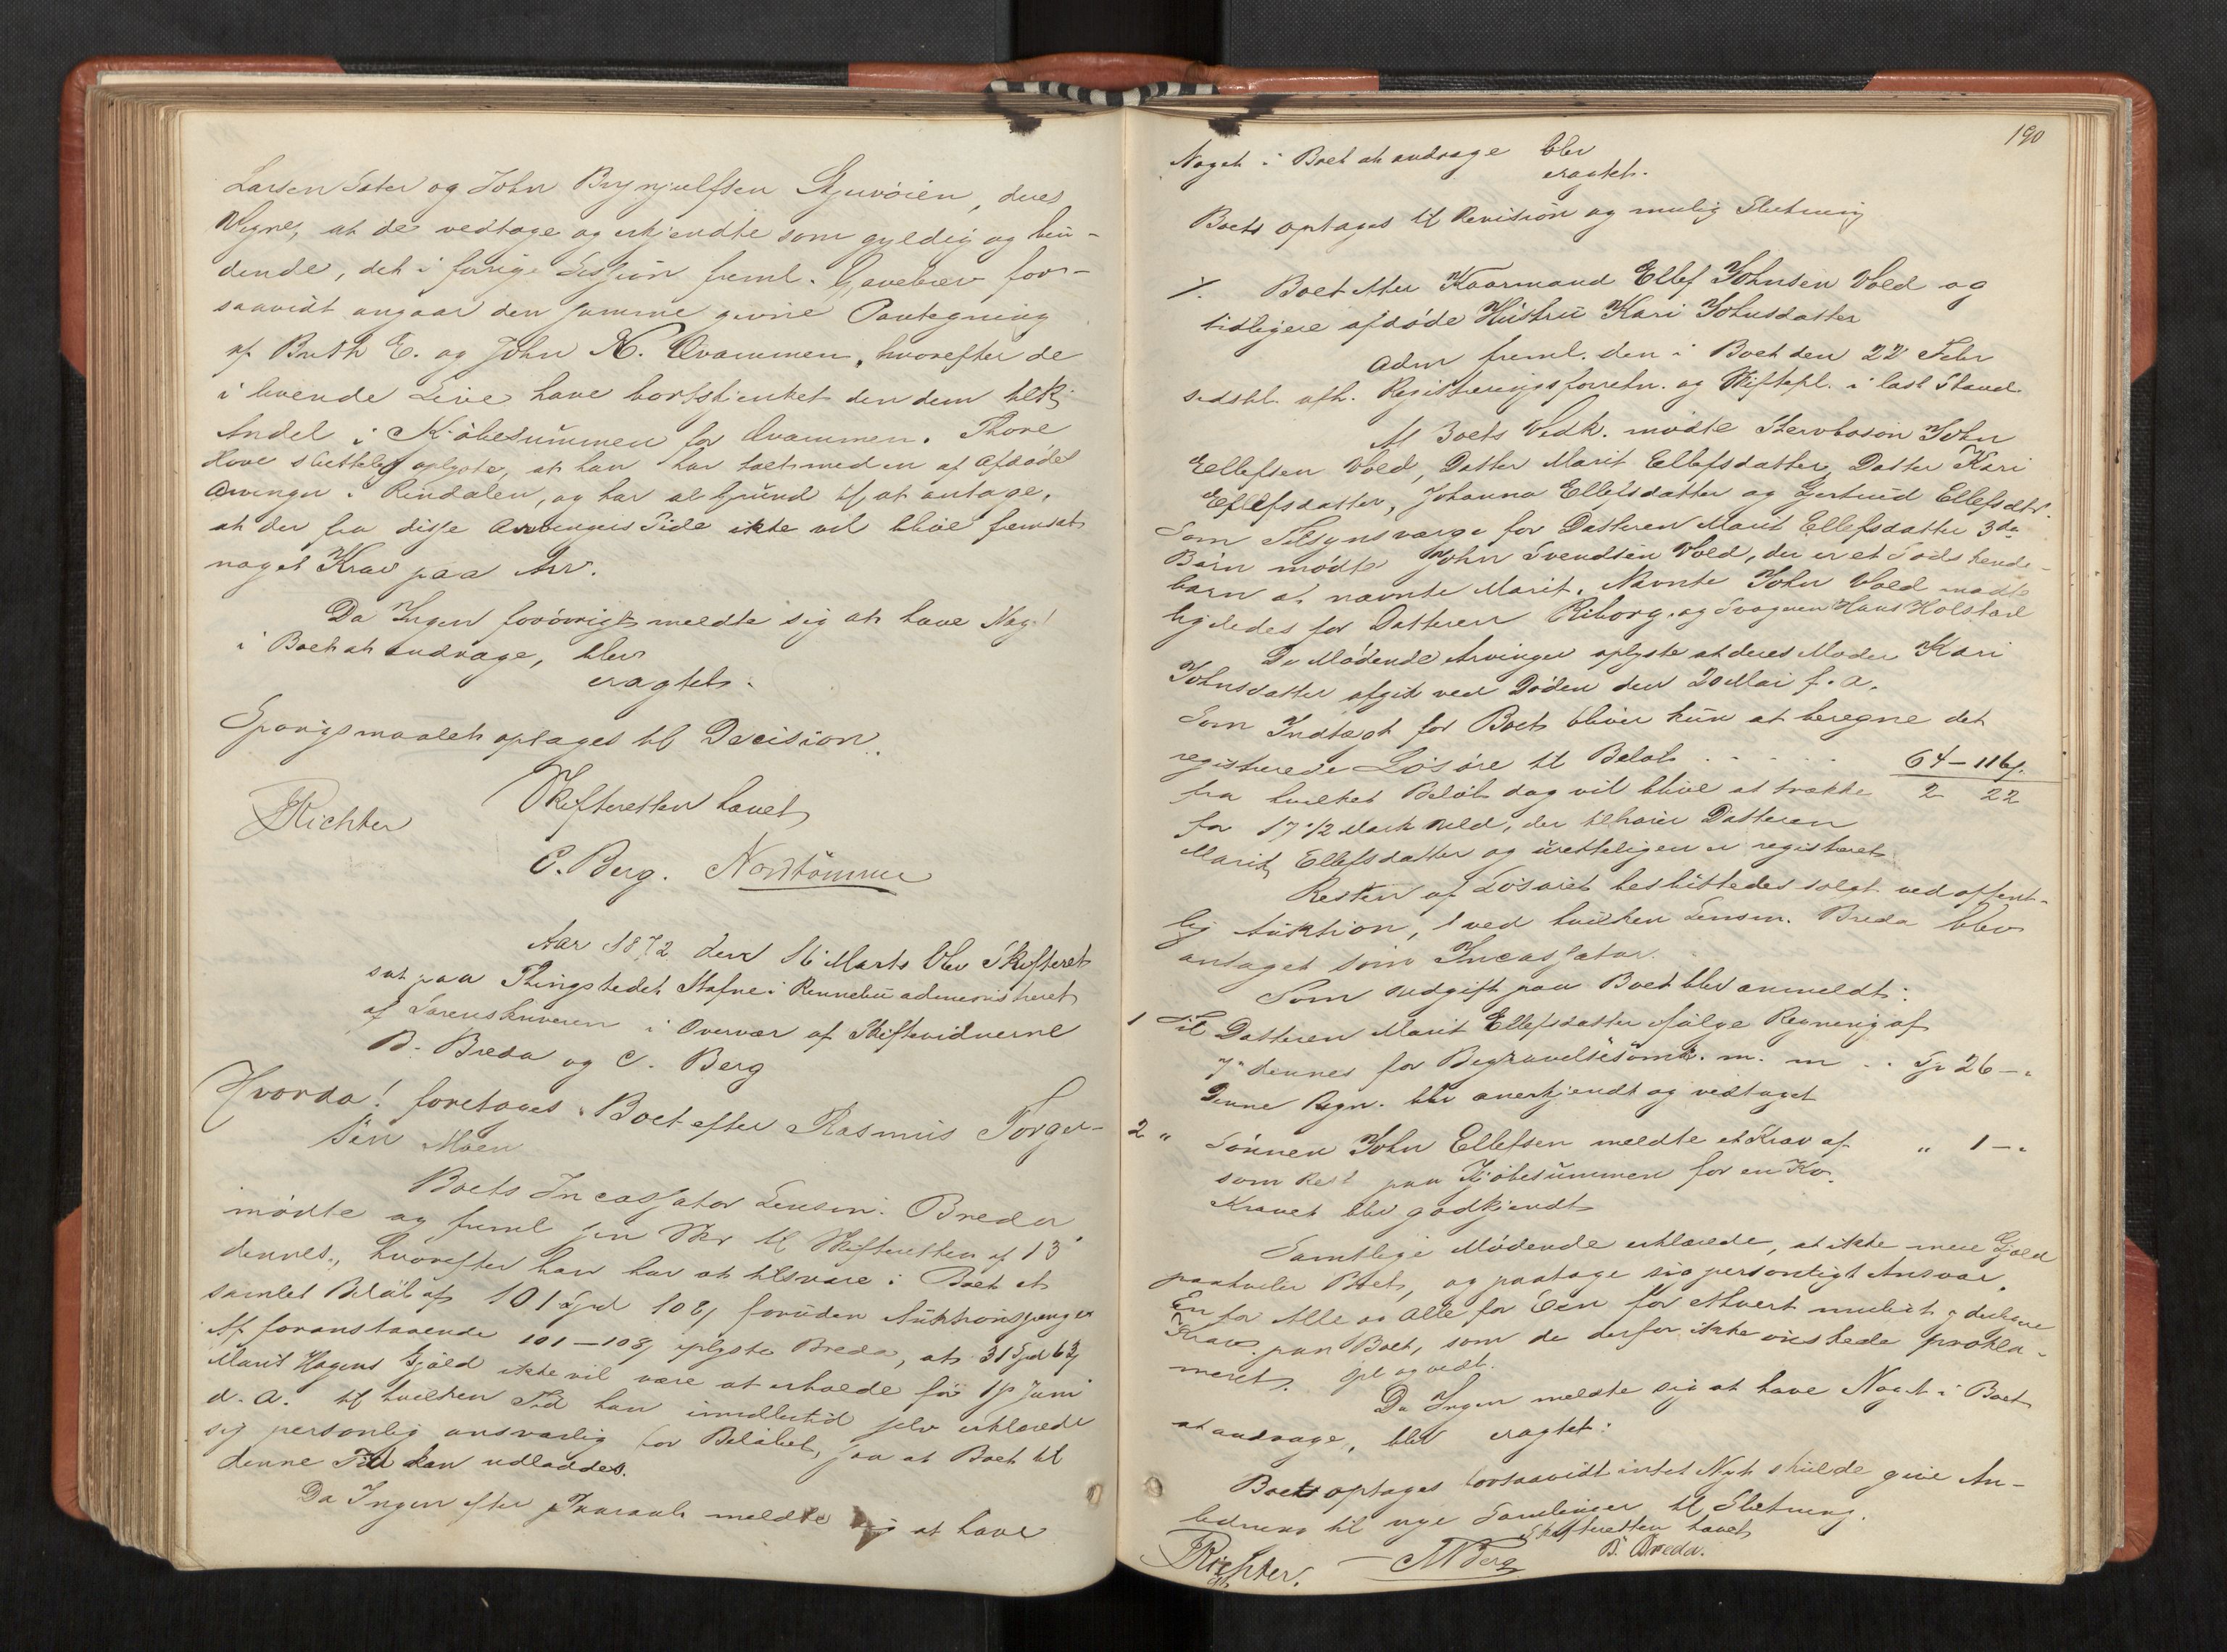 Larsen Sæter og John Brynjulfsen Gjuvøien, deres
Vegne, at de vedtage og erkjendte som gyldig og bin-
dende, det i forrige Session freml. Gavebrev for-
saavidt angaar den samme givne Paategning
af Brith E. og John K. Qvammen, hvorefter de
i levende Live have bortskjenket den dem tilk.
Andel i Kjøbesummen for Qvammen. Thore
Hove sluttelig oplyste, at han har talt med en af Afdødes
Arvinger i Rindalen, og har al Grund til at antage,
at der fra disse Arvingers Side ikke vil blive fremsat
noget Krav paa Arv.
Da Ingen forøvrigt meldte sig at have Noget
i Boet at andrage, blev
eragtet.
Spørgsmaalet optages til Decision.
Skifteretten hævet
Richter
C. Berg. Nordtømme
Aar 1872 den 16 Marts blev Skifteret
sat paa Thingstedet Stafne i Rennebu administreret
af Sorenskriveren i Overvær af Skiftevidnerne
B. Breda og C. Berg
Hvorda! foretages Boet efter Rasmus Torger-
sen Moen
Boets Incassator Lensm. Breda
mødte og freml sin Skr til Skifteretten af 13
dennes, hvorefter han har at tilsvare i Boet et
samlet Beløb af 101 Spd 108 ß foruden Auktionspenger
Af foranstaaende 101-108 ß oplyste Breda, at 31 Spd 63 ß
Marit Hagens Gjæld ikke vil være at erholde før 1ste Juni
d. A. til hvilken Tid han imidlertid selv erklærede
sig personlig ansvarlig for Beløbet, saa at Boet til
denne Tid kan udloddes.
Da Ingen efter Paaraab meldte sig at have
190
Noget i Boet at andrage blev
eragtet.
Boet optages til Revision og mulig Slutning
Boet efter Kaarmand Ellef Johnsen Vold og
tidligere afdøde Hustru Kari Johnsdatter
Adm freml. den i Boet den 22 Febr
sidstl. afh. Registreringsforretn. og Skiftepl. i læst Stand
Af Boets Vedk. mødte Stervbosøn John
Ellefsen Vold, Datter Marit Ellefsdatter, Datter Kari
Ellefsdatter, Johanna Ellefsdatter og Gjertrud Ellefsdtr.
Som Tilsynsværge for Datteren Marit Ellefsdatter 3de
Børn mødte John Svendsen Vold, der er et Sødskende-
barn af nævnte Marit. Nævnte John Vold mødte
ligeledes for Datteren Riborg. og Svogeren Hans Holstad
De Mødende Arvinger oplyste at deres Moder Kari
Johnsdatter afgik ved Døden den 20 Mai f. A.
Som Indtægt for Boet bliver kun at beregne det
registrerede Løsøre til Beløb . . . . . 64-116 ß.
fra hvilket Beløb dog vil blive at trække 2 22
for 17 1/2 Mark Uld, der tilhører Datteren
Marit Ellefsdatter og uretteligen er registreret.
Resten af Løsøret besluttedes solgt ved offent-
lig Auktion, ved hvilken Lensm. Breda blev
antaget som Incassator.
Som Udgift paa Boet blev anmeldt:
1 Til Datteren Marit Ellefsdatter ifølge Regning af
7de dennes for Begravelsesomk. m. m . . Spd 26 - "
Denne Regn. blev anerkjendt og vedtaget
2 " Sønnen John Ellefsen meldte et Krav af " 1 - "
som Rest paa Kjøbesummen for en Ko.
Kravet blev godkjendt
Samtlige Mødende erklærede, at ikke mere Gjæld
paahviler Boet, og paatage sig personligt Ansvar,
En for Alle og Alle for Een for ethvert muligt
Krav paa Boet, som de derfor ikke ønskede prokla-
meret. Opl og vedt.
Da Ingen meldte sig at have Noget i Boet
at andrage, blev eragtet:
Boet optages forsaavidt intet Nyt skulde give An-
ledning til nye Samlinger til Slutning.
Skifteretten hævet
Richter. Berg B. Breda.